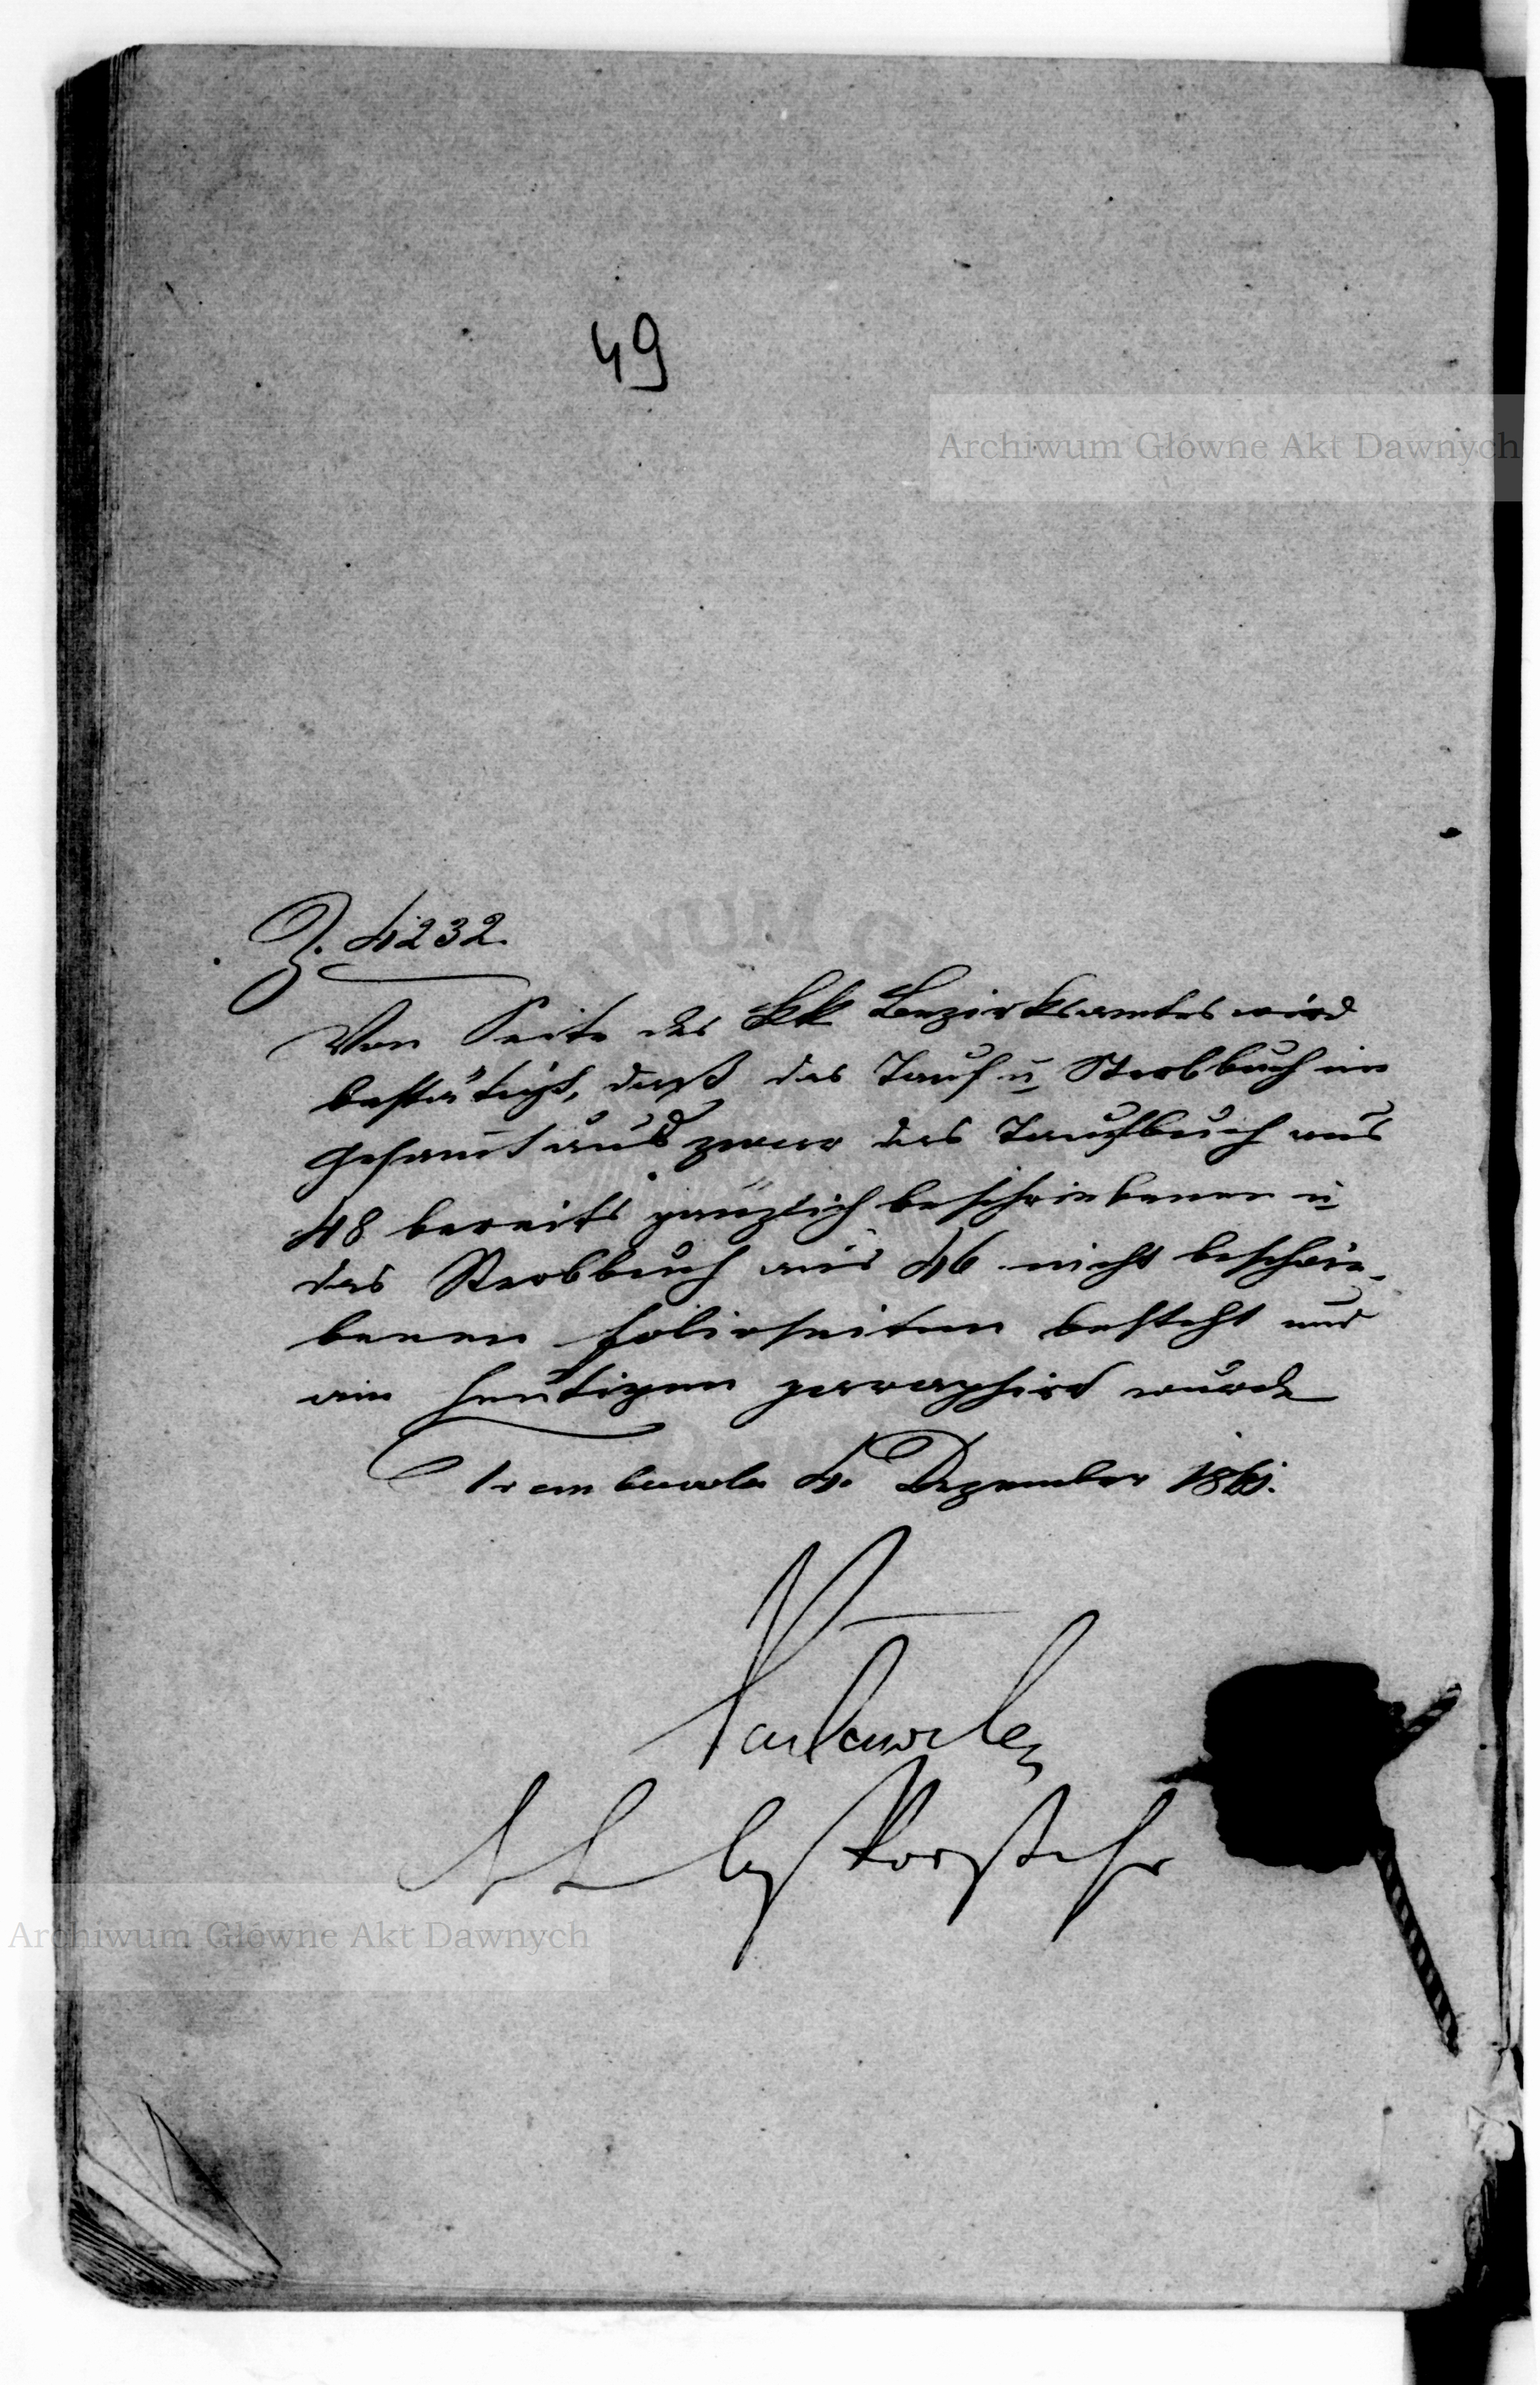 49
Archiwum Główne Akt Dawnych
Z. 4232.
Von Seite des kk Bezirksamtes wird
bestätigt, daß das Tauf u Sterbbuch im
Gesamt und zwar das Taufbuch aus
48 bereits gänzlich beschriebenen u
das Sterbbuch aus 46 nicht beschrie-
benen Folioseiten besteht und
am heutigen paraphirt wurde
Trembowla 4. Dezember 1861.
Archiwum Główne Akt Dawnych